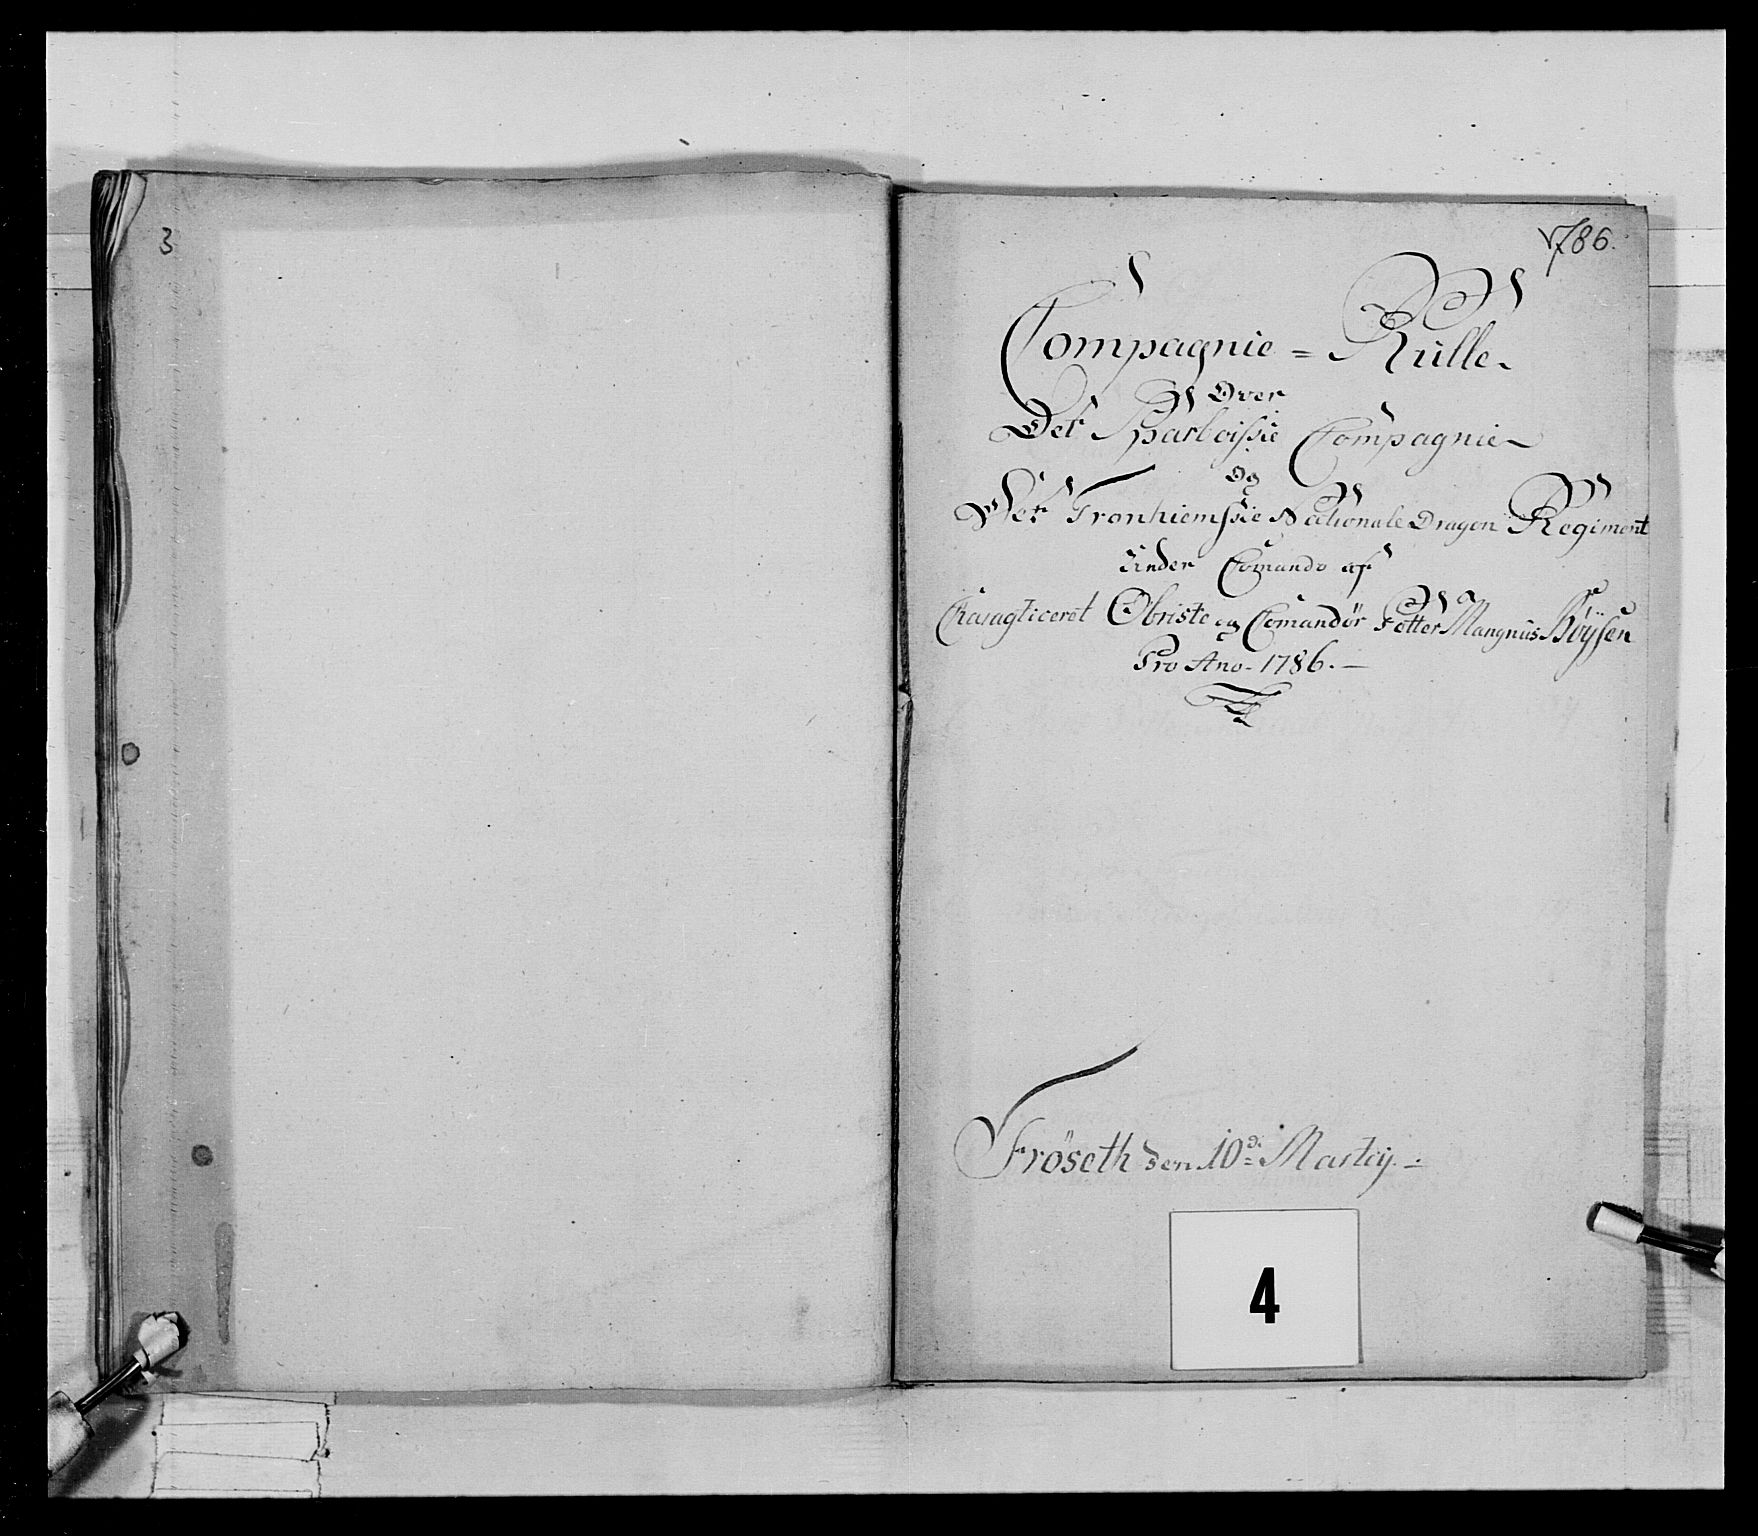 3
1786.
Compagnie = Rulle
Over
Det Sparboißie Compagnie
Og
Det Tronhiemßie Nationale Dragon Regiment
Under Comando af
Caragticeret Obriste og Comandör Petter Mangnus Böysen
Pro Ano. 1786. —
Fröseth den 10de Martij.
4